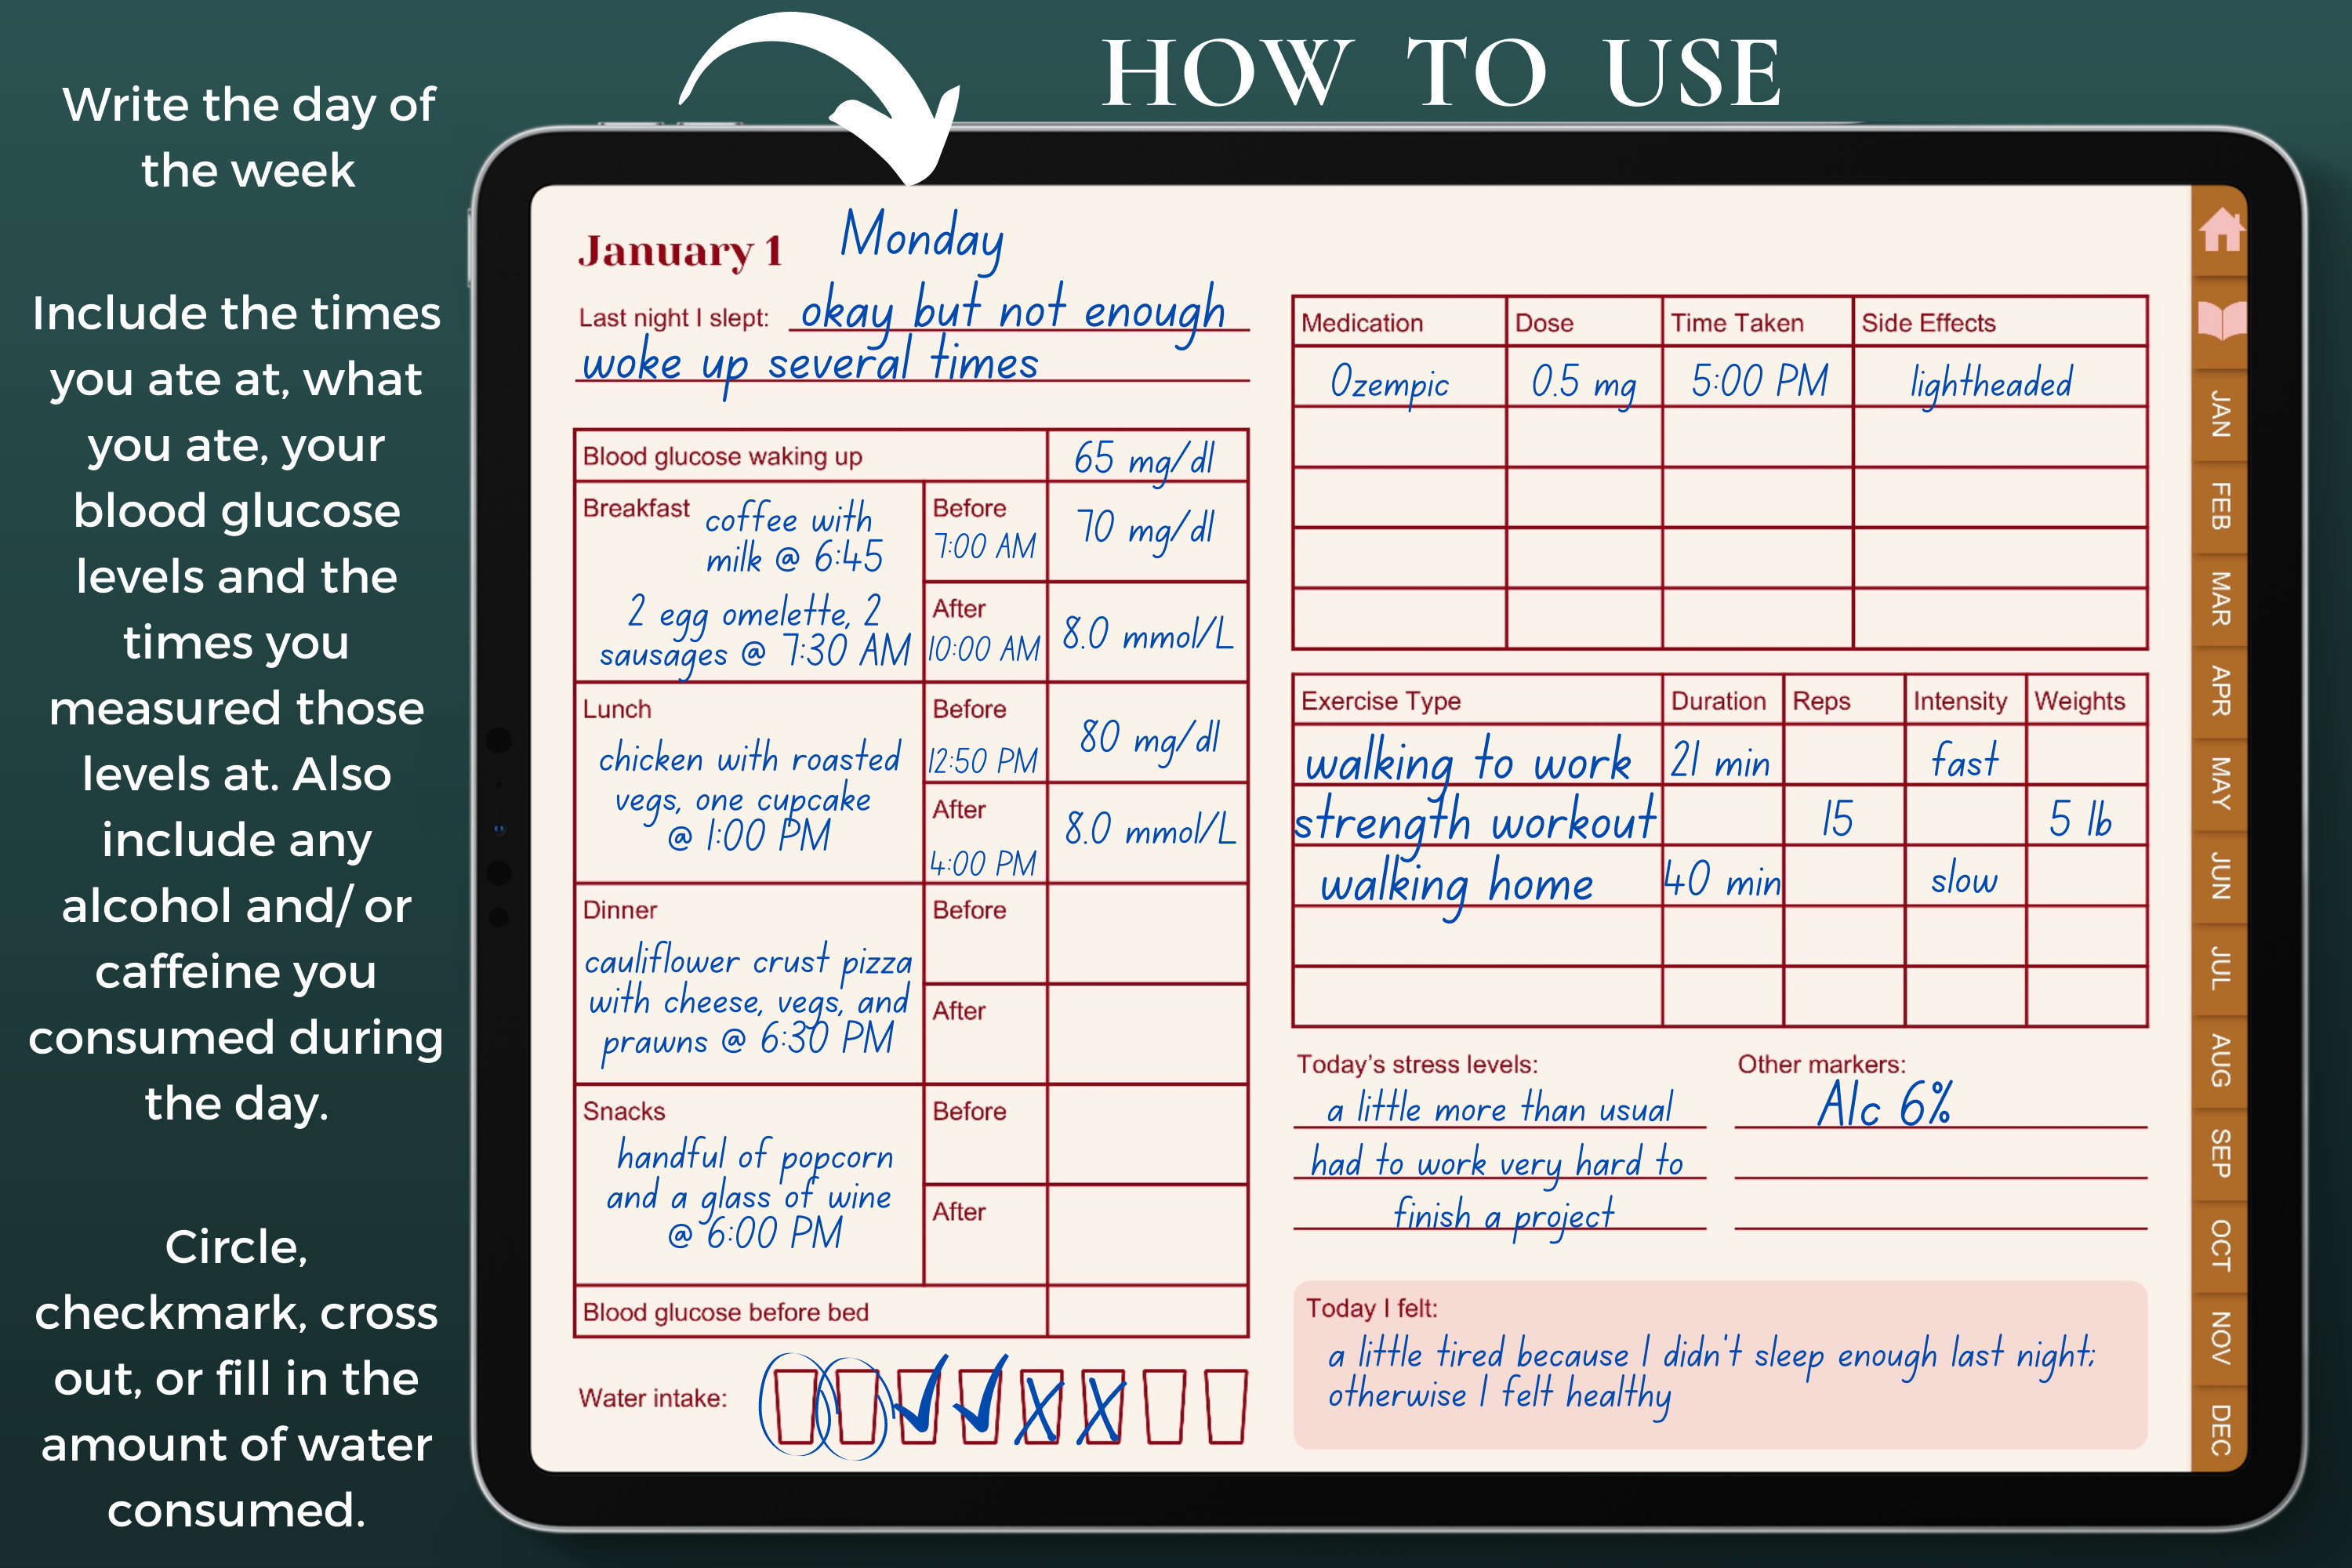 HOW TO USE
Write the day of
the week
Include the times
you ate at, what
you ate, your
blood glucose
levels and the
times you
measured those
levels at. Also
include any
alcohol and/ or
caffeine you
consumed during
the day.
Circle,
checkmark, cross
out, or fill in the
amount of water
consumed.
January 1 Monday
Last night I slept: okay but not enough
woke up several times
Blood glucose waking up 65 mg/dl
Breakfast coffee with
milk @ 6:45
2 egg omelette, 2
sausages @ 7:30 AM
Before 70 mg/dl
7:00 AM
After 8.0 mmol/L
10:00 AM
Lunch
chicken with roasted
vegs, one cupcake
@ 1:00 PM
Before 80 mg/dl
12:50 PM
After 8.0 mmol/L
4:00 PM
Dinner
cauliflower crust pizza
with cheese, vegs, and
prawns @ 6:30 PM
Before
After
Snacks
handful of popcorn
and a glass of wine
@ 6:00 PM
Before
After
Blood glucose before bed
Water intake:
Medication Dose Time Taken Side Effects
Ozempic 0.5 mg 5:00 PM lightheaded
Exercise Type Duration Reps Intensity Weights
walking to work 21 min fast
strength workout 15 5 lb
walking home 40 min slow
Today's stress levels:
a little more than usual
had to work very hard to
finish a project
Other markers:
Alc 6%
Today I felt:
a little tired because I didn't sleep enough last night;
otherwise I felt healthy
JAN
FEB
MAR
APR
MAY
JUN
JUL
AUG
SEP
OCT
NOV
DEC